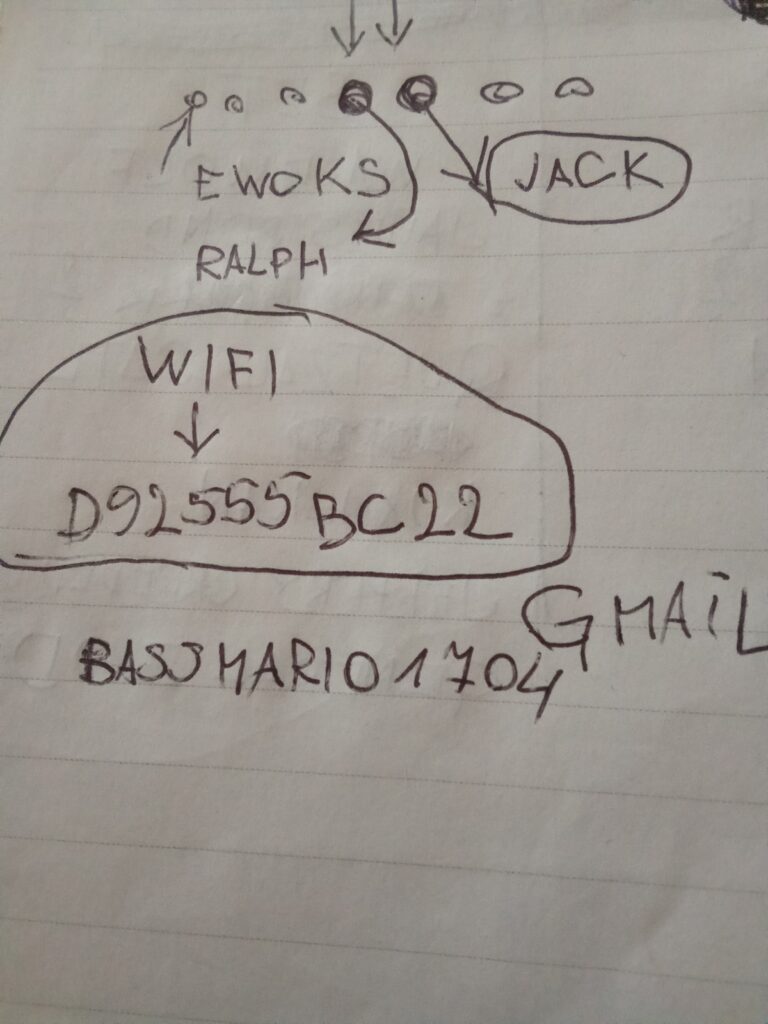 EWOKS
JACK
RALPH
WIFI
D92555BC22
GMAiL
BASSMARIO1704